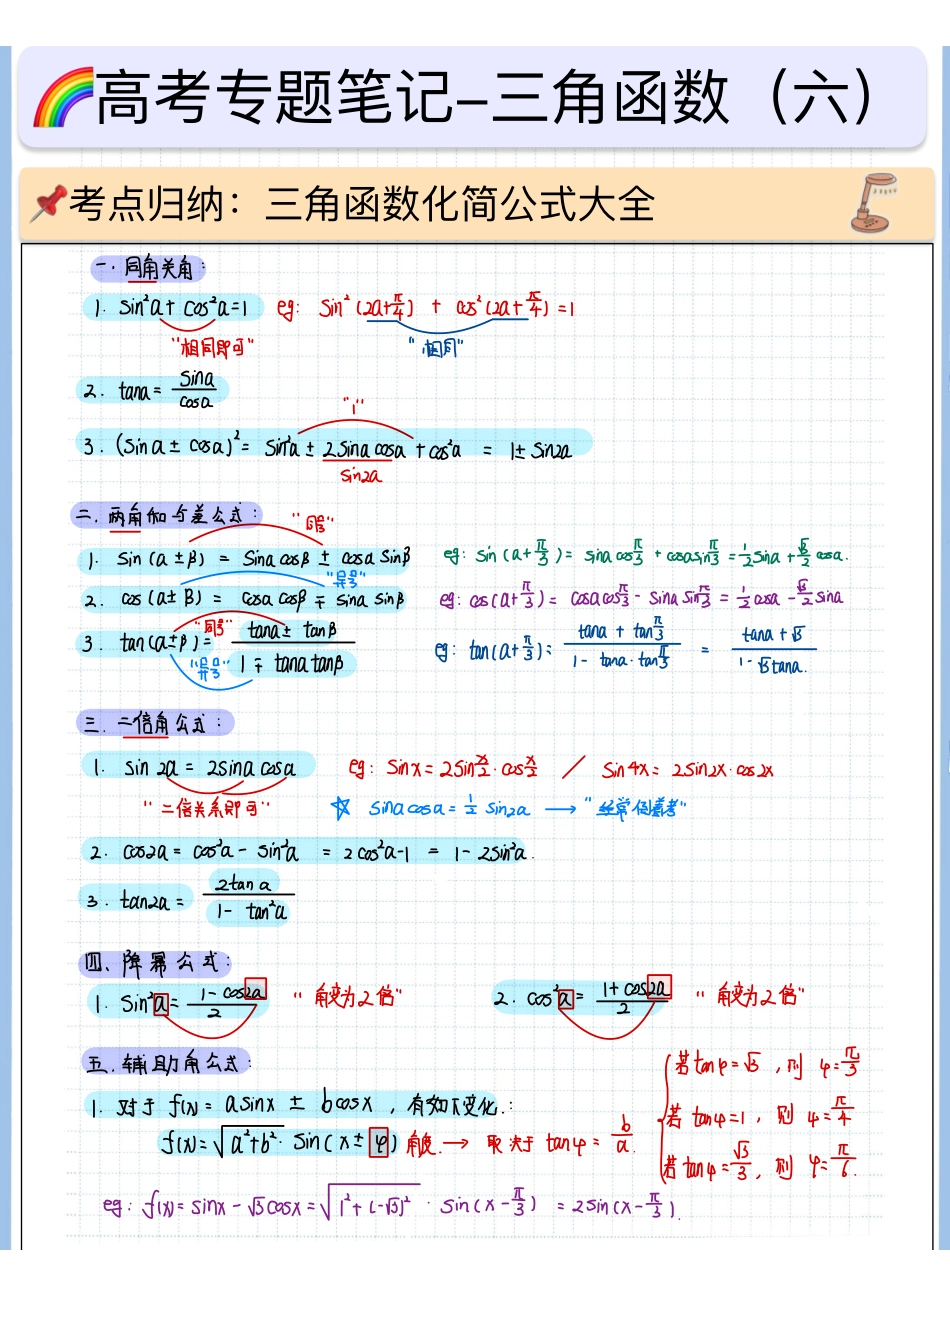 高考专题笔记–三角函数（六）
考点归纳：三角函数化简公式大全
一.同角关角：
1. sin²a+cos²a=1 eg: sin²(2a+π/4) + cos²(2a+π/4)=1
"相同即可" "相同"
2. tana = sina/cosa
"1"
3. (sina±cosa)² = sin²a ± 2sina cosa + cos²a = 1±sin2a
sin2a
二.两角和与差公式：
"同号"
1. sin(a±β) = sina cosβ ± cosa sinβ eg: sin(a+π/3) = sina cosπ/3 + cosa sinπ/3 = 1/2 sina + √3/2 cosa.
"异号"
2. cos(a±β) = cosa cosβ ∓ sina sinβ eg: cos(a+π/3) = cosa cosπ/3 - sina sinπ/3 = 1/2 cosa - √3/2 sina
"同号"
3. tan(a±β) = (tana ± tanβ)/(1 ∓ tana tanβ) eg: tan(a+π/3) = (tana + tanπ/3)/(1 - tana·tanπ/3) = (tana+√3)/(1-√3tana.)
"异号"
三.二倍角公式：
1. sin2a = 2sina cosa eg: sinx = 2sin x/2 · cos x/2 / sin4x = 2sin2x·cos2x
"二倍关系即可" ☆ sina cosa = 1/2 sin2a → "经常倒着考"
2. cos2a = cos²a - sin²a = 2cos²a-1 = 1-2sin²a.
3. tan2a = 2tana/(1-tan²a)
四、降幂公式：
1. sin²a = (1-cos2a)/2 "角变为2倍" 2. cos²a = (1+cos2a)/2 "角变为2倍"
五.辅助角公式：
1. 对于 f(x) = asinx ± bcosx，有如下变化.：
f(x) = √(a²+b²)·sin(x±φ) 角度. → 取决于 tanφ = b/a.
若tanφ=√3，则 φ=π/3
若tanφ=1，则 φ=π/4
若tanφ=√3/3，则 φ=π/6.
eg: f(x) = sinx - √3cosx = √(1²+(-√3)²) · sin(x-π/3) = 2sin(x-π/3).